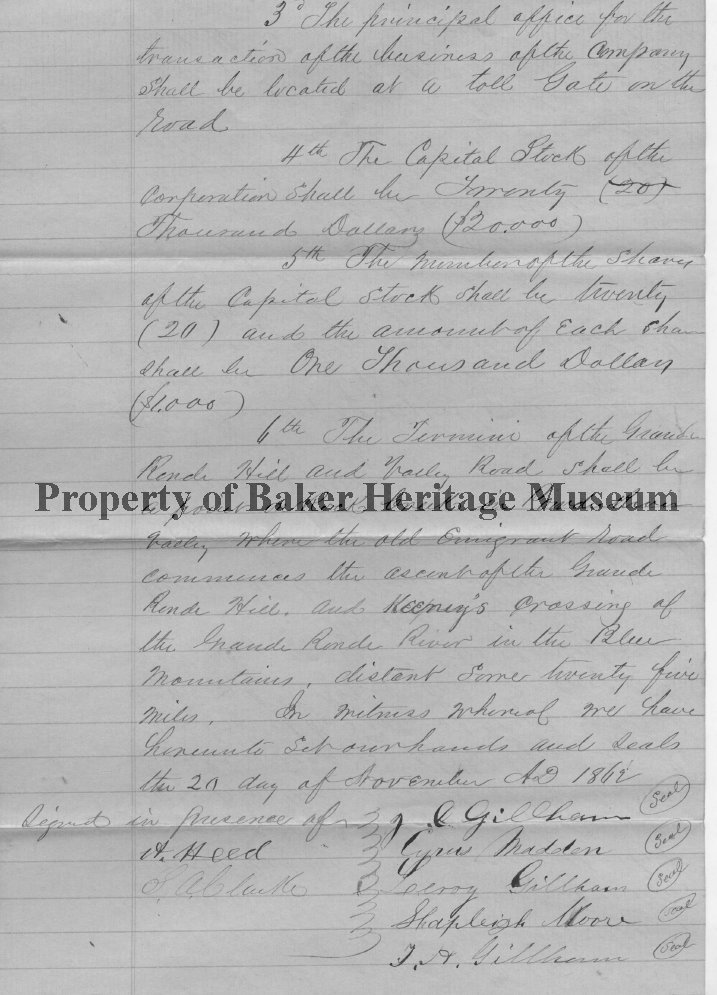 3d The principal office for the
transaction of the business of the Company
shall be located at a toll Gate on the
Road
4th The Capital Stock of the
Corporation shall be Twenty (20)
Thousand Dollars ($20.000)
5th The number of the shares
of the Capital Stock shall be twenty
(20) and the amount of Each share
shall be One Thousand Dollars
($1.000)
6th The Termini of the Grande
Ronde Hill and Valley Road shall be
Property of Baker Heritage Museum
a point
valley where the old Emigrant road
commences the ascent of the Grande
Ronde Hill. and Keeney's crossing of
the Grande Ronde River in the Blue
Mountains, distant some twenty five
miles. In witness whereof we have
hereunto set our hands and seals
the 20 day of November AD 1862
Signed in presence of J. C Gillham Seal
A. Heed Cyrus Madden Seal
S. A. Clarke Leeroy Gillham Seal
Shapleigh Moore Seal
T. A. Gillham Seal